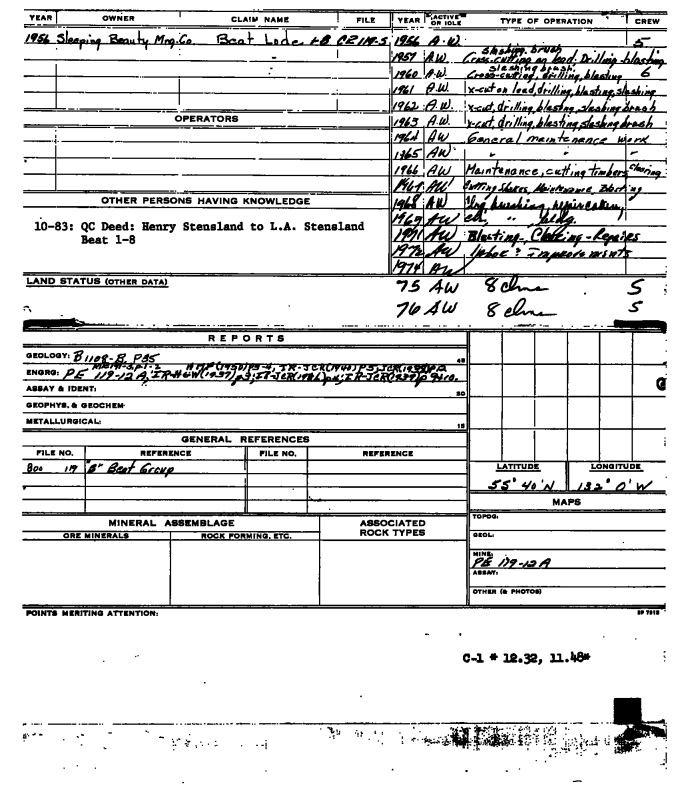 YEAR OWNER CLAIM NAME FILE YEAR ACTIVE OR IDLE TYPE OF OPERATION CREW
1956 Sleeping Beauty Mng. Co. Beat Lode 1-8 CZ 119-5 1956 A.W. 5
slashing, brush
1957 A.W. Cross-cutting on load, Drilling-blasting
slashing brush,
1960 A.W. Cross-cutting, drilling, blasting 6
1961 A.W. x-cut on load, drilling, blasting, slashing
1962 A.W. x-cut, drilling, blasting, slashing brush
OPERATORS 1963 A.W. x-cut, drilling, blasting, slashing brush
1964 AW General maintenance work
1965 AW " " "
1966 AW Maintenance, cutting timbers, clearing
1967 AW Cutting stakes, Maintenance, Blasting
OTHER PERSONS HAVING KNOWLEDGE 1968 AW brushing,
1969 AW " bldg.
10-83: QC Deed: Henry Stensland to L.A. Stensland
Beat 1-8
1971 AW Blasting, Repairs
1972 AW Labor & Improvements
1974 AW
LAND STATUS (OTHER DATA) 75 AW 8 clms 5
76 AW 8 clms 5
REPORTS
GEOLOGY: B 1108-B, P35 45
MR 191-5, p1-2
ENGRG: PE 119-12A; IR-HGW(1937)p3; 30
ASSAY & IDENT:
GEOPHYS. & GEOCHEM-
METALLURGICAL: 15
GENERAL REFERENCES
FILE NO. REFERENCE FILE NO. REFERENCE
Boo 119 "B" Beat Group
LATITUDE LONGITUDE
55° 40' N 132° 0' W
MAPS
MINERAL ASSEMBLAGE ASSOCIATED ROCK TYPES
ORE MINERALS ROCK FORMING, ETC.
TOPOG:
GEOL:
MINE:
PE 119-12A
ASSAY:
OTHER (& PHOTOS)
POINTS MERITING ATTENTION:
C-1 * 12.32, 11.48*